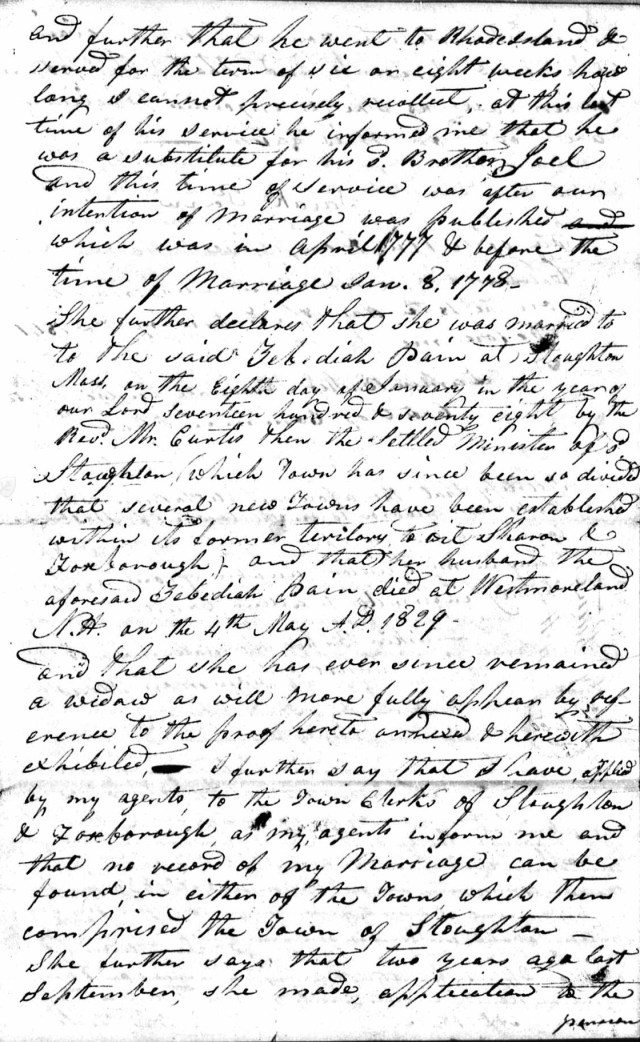 and further that he went to Rhodeisland &
served for the term of six or eight weeks how
long I cannot precisely recollect, at this last
time of his service he informed me that he
was a substitute for his sd. Brother, Joel
and this time of service was after our
intention of Marriage was published and
which was in April 1777 & before the
time of Marriage Jan. 8. 1778-
She further declares that she was married to
to the said Zebediah Pain at Stoughton
Mass. on the Eighth day of January in the year of
our Lord seventeen hundred & seventy eight by the
Revd. Mr. Curtis then the settled Minister of sd.
Stoughton (which Town has since been so divided
that several new Towns have been established
within its former teritory, to wit Sharon &
Foxborough) and that her husband the
aforesaid Zebediah Pain died at Westmoreland
N.H. on the 4th May A.D. 1829-
and that she has ever since remained
a widow as will more fully appear by ref-
erence to the proof hereto annexed & herewith
exhibited, — I further say that I have applied
by my agents, to the Town Clerks of Stoughton
& Foxborough, as my agents inform me and
that no record of my Marriage can be
found, in either of the Towns which then
comprised the Town of Stoughton—
She further says that two years ago last
September, she made, application to the
pension